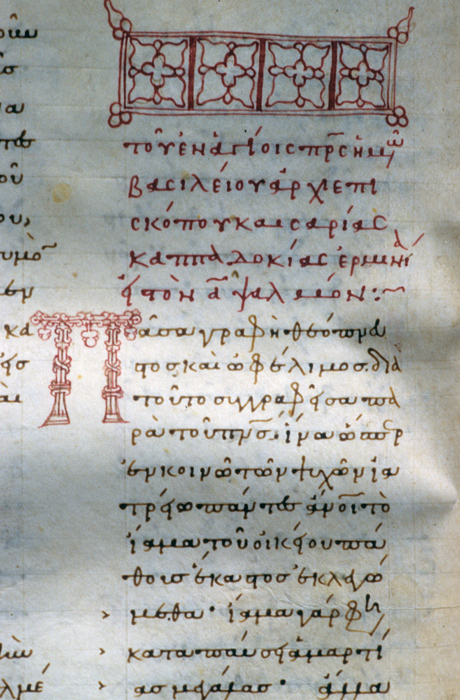 τοῦ ἐν ἁγίοις πρς ἡμῶ
βασιλείου ἀρχιεπι
σκόπου καισαρίας
καππαδοκίας ἑρμηνεία
εἰς τὸν α ψαλμόν:~
Πᾶσα γραφὴ θεόπνευ
στος καὶ ὠφέλιμος. διὰ
τοῦτο συγγραφεῖσα πα
ρὰ τοῦ πνς. ἵνα ὥσπερ
ἐν κοινῶ τῶν ψυχῶν ἰα
τρείω πάντες ἄνοι τὸ
ἴαμα τοῦ οἰκείου πά
θους ἕκαστος ἐκλεγώ
μεθα· ἴαμα γάρ φη
καταπαύσει ἁμαρτί
ας μεγάλας· ἄλλα